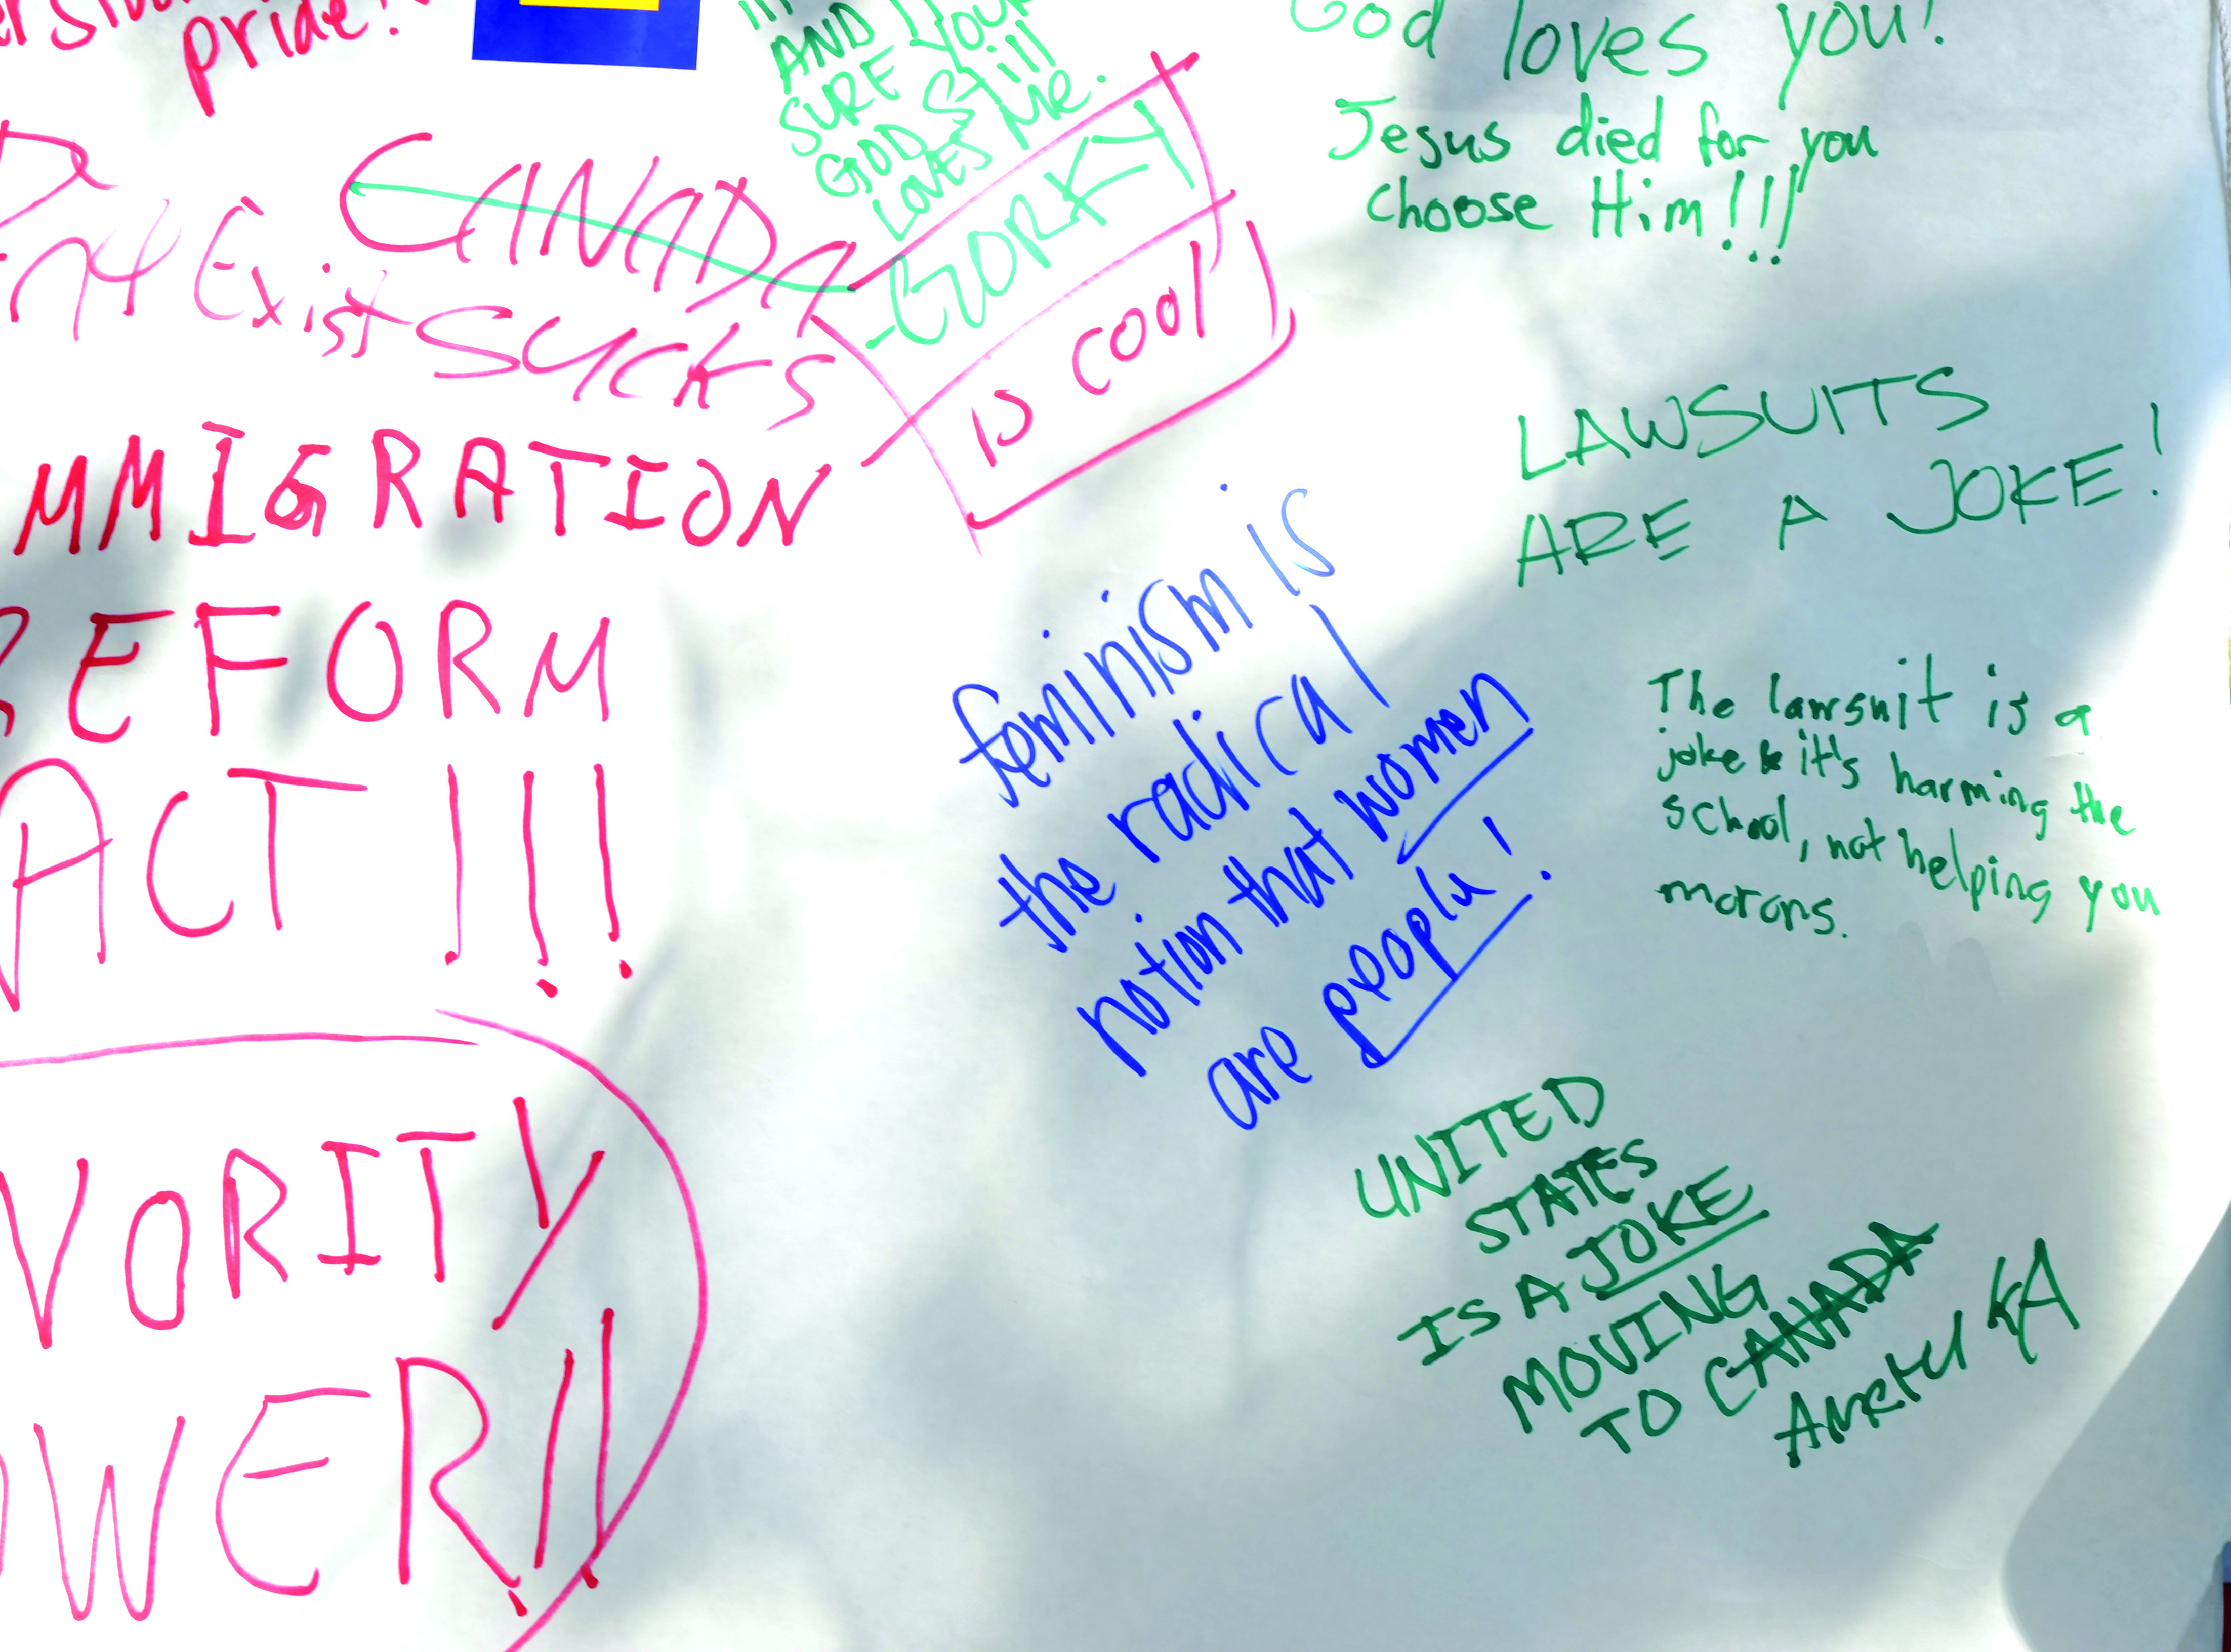 pride!
AND
SURE YOUR
GOD Still
LOVES Me.
-GORKY
is cool
God loves you!
Jesus died for you
choose Him!!!
Exist
CANADA
SUCKS
MMIGRATION
REFORM
ACT!!!
VORITY
OWER!!
LAWSUITS
ARE A JOKE!
feminism is
the radical
notion that women
are people!
The lawsuit is a
joke & it's harming the
school, not helping you
morons.
UNITED
STATES
IS A JOKE
MOVING
TO CANADA